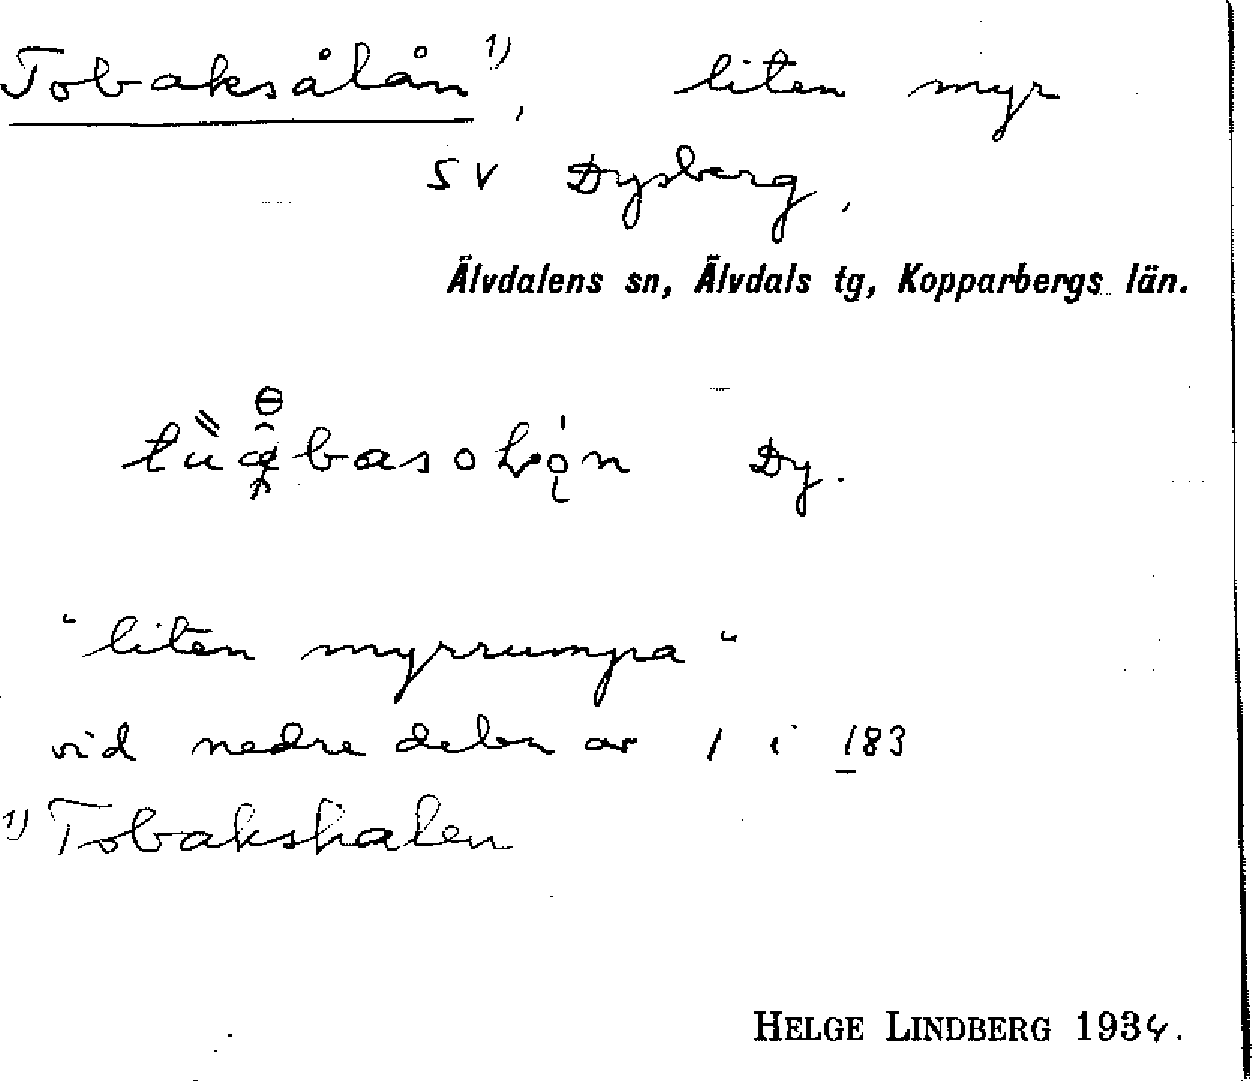 Tobaksålån 1), liten myr
SV Dysberg,
Älvdalens sn, Älvdals tg, Kopparbergs län.
Dy.
"liten myrrumpa"
vid nedre delen av 1 i 183
1) Tobakshalen
HELGE LINDBERG 1934.